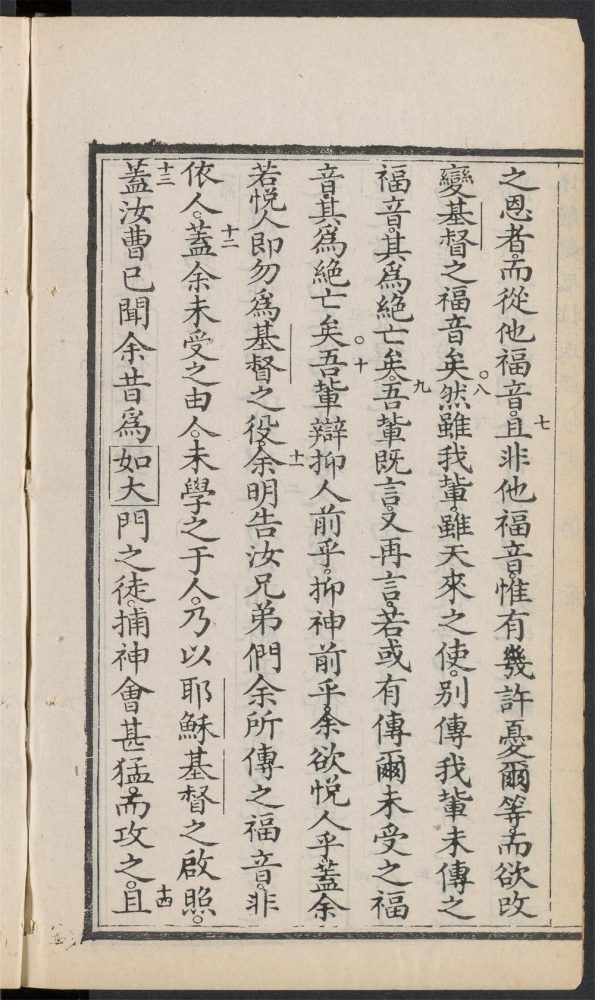 之恩者。而從他福音。七且非他福音。惟有幾許憂爾等。而欲改
變基督之福音矣。八然雖我輩。雖天來之使。別傳我輩未傳之
福音。其為絕亡矣。九吾輩既言。又再言。若或有傳爾未受之福
音。其為絕亡矣。十吾輩辯抑人前乎。抑神前乎。余欲悅人乎。蓋余
若悅人即勿為基督之役。十一余明告汝兄弟們余所傳之福音。非
依人。十二蓋余未受之由人。未學之于人。乃以耶穌基督之啟照。
十三蓋汝曹已聞余昔為如大門之徒。捕神會甚猛。而攻之。十四且